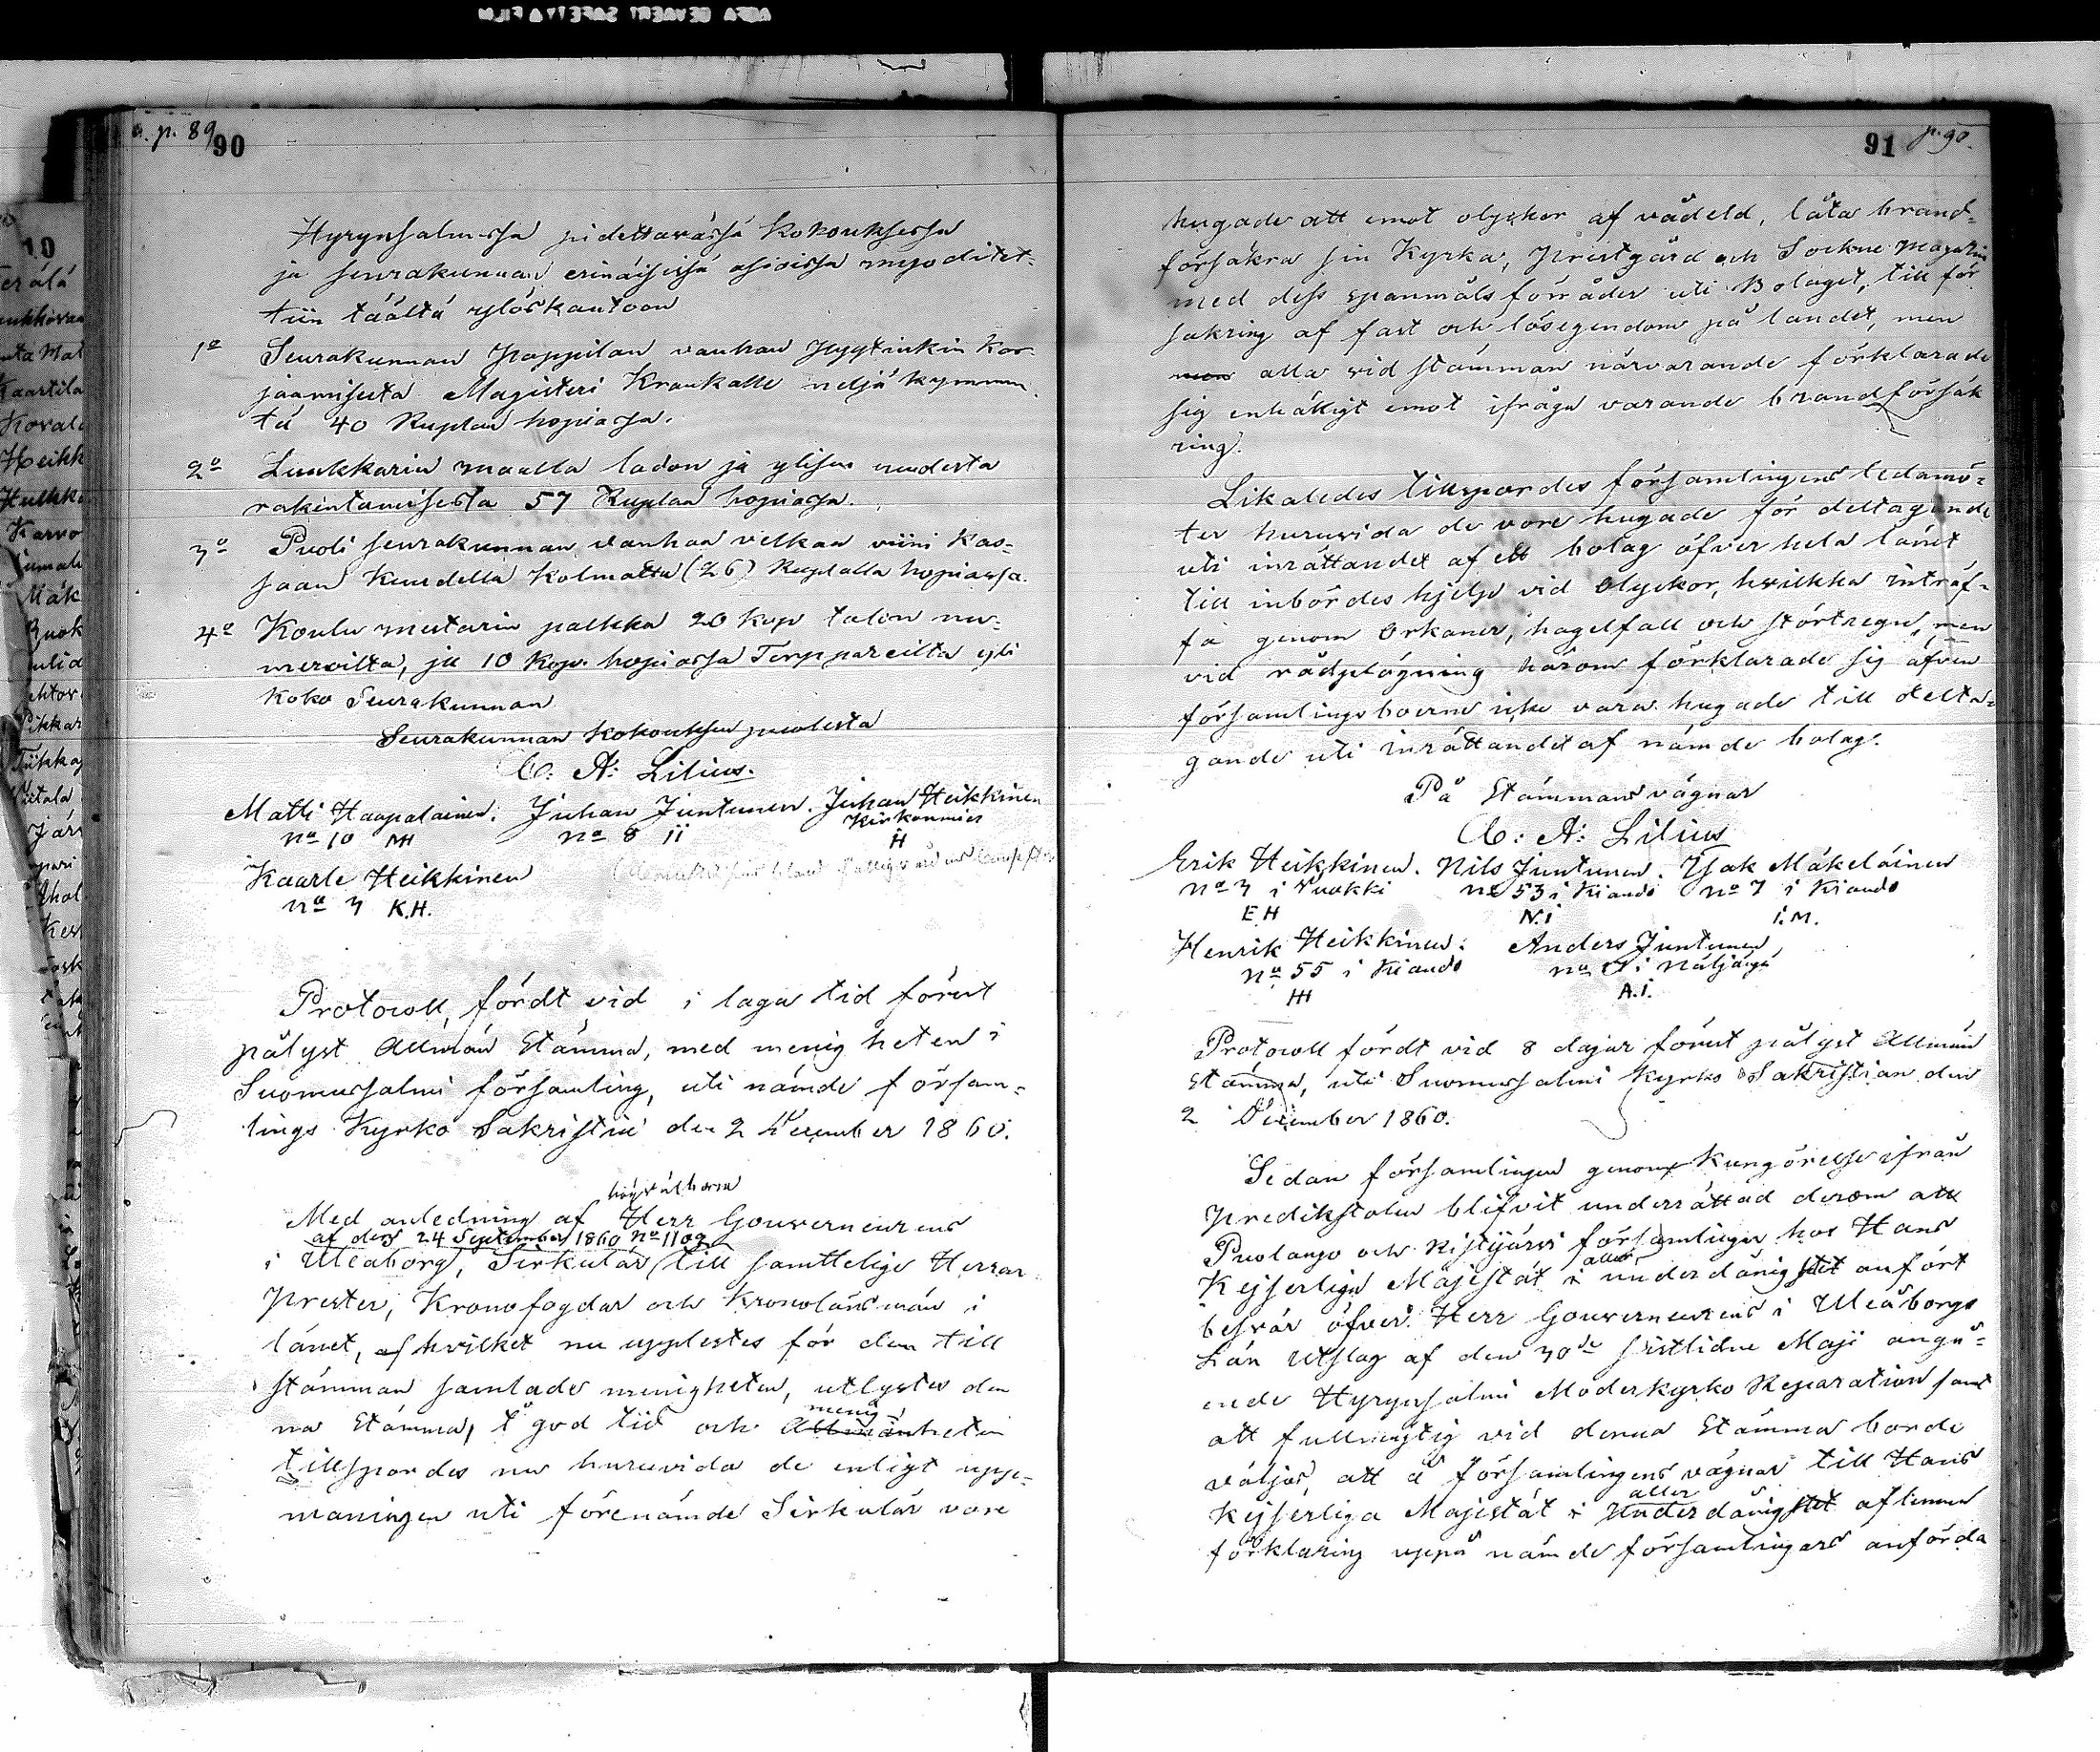 a. p. 89
90
Hyrynsalmessa pidettavässä kokouksessa
ja seurakunnan erinäisissä asioissa myoditet-
tiin täältä ylöskantoon
1o Seurakunnan Pappilan vanhan Pyytinkin kor-
jaamisesta Magisteri Krankalle neljäkymmen
tä 40 Ruplaa hopiassa.
2o Lukkarin maalla ladon ja ylisen uudesta
rakentamisesta 57 Ruplaa hopiassa.
3o Puoli seurakunnan vanhaa velkaa viini kas-
saan kuudella kolmatta (26) Ruplalla hopiassa.
4o Koulu mestarin palkka 20 kop talon nu-
meroilta, ja 10 kop. hopiassa Torppareilta yli
koko Seurakunnan
Seurakunnan kokouksen puolesta
C: A: Lilius.
Matti Haapalainen. Juhan Juntunen. Juhan Heikkinen
No 10 MH No 8 ii Kirkonmies
H
Kaarle Heikkinen
No 3 K.H.
Protocoll, fördt vid i laga tid förut
pålyst Allmän Stämma, med menigheten i
Suomussalmi församling, uti nämde försam-
lings Kyrko Sakristia den 2 December 1860.
högvälborne
Med anledning af Herr Gouverneurens
af den 24 September 1860 No 1109
i Uleåborg, Sirkulär till samttelige Herrar
Prester, Kronofogdar och Kronolänsmän i
länet, af hvilket nu upplestes för den till
stämman samlade menigheten, utlystes den
na Stämma, i god tid och
menig-
Allmänheten
tillspordes nu huruvida de enligt uppe-
maningen uti förenämde Sirkulär vore
91
p. 90.
hugade att emot olyckor af vådeld, låta brand-
försäkra sin Kyrka, Prestgård och Sockne magazin
med dess spanmåls förråder uti Bolaget, till för
säkring af fast och lösegendom på landet, men
men alla vid stämman närvarande förklarade
sig enhälligt emot ifråga varande brandförsäk
ring.
Likaledes tillspordes församlingens ledamö-
ter huruvida de vore hugade för deltagande
uti inrättandet af ett bolag öfver hela länet
till inbördes hjelp vid olyckor, hvilkka inträf-
fa genom Orkaner, hagelfall och störtregn, men
vid rådplägning härom förklarade sig äfven
församlingsboerne icke vara hugade till delta-
gande uti inrättandet af nämde bolag.
På Stämmans vägnar
C: A: Lilius
Erik Heikkinen. Nils Juntunen. Isak Mäkeläinen
No 3 i Vuokki No 53 i Kiando No 7 i Kiando
E H N.i i.M.
Henrik Heikkinen. Anders Juntunen
No 55 i Kiando No i Näljängä
HH A.i.
Protocoll fördt vid 8 dagar förut pålyst Allmän
Stämma, uti Suomussalmi Kyrko Sakristian den
2 December 1860.
Sedan församlingen genom kungörelse ifrån
Predikstolen blifvit underrättad derom att
Puolango och Ristijärvi församlingar hos Hans
aller
Kejserliga Majestät i underdånigstet anfört
besvär öfver Herr Gouverneurens i Uleåborgs
Län Utslag af den 30de sistlidne Maji angå-
ende Hyrynsalmi Moderkyrko Reparation samt
att fullmegtig vid denna Stämma borde
väljas, att å församlingens vägnar till Hans
aller
Kejserliga Majestät i Underdånigstet aflemna
förklaring uppå nämde församlingars anförda